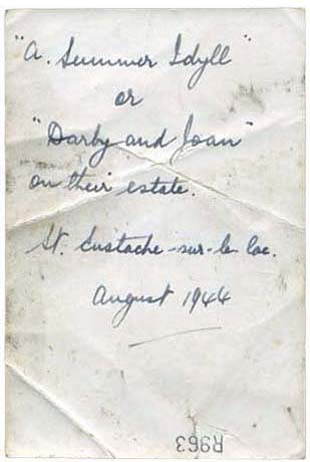 "A. Summer Idyll"
or
"Darby and Joan"
on their estate.
St. Eustache-sur-le lac.
August 1944
R963